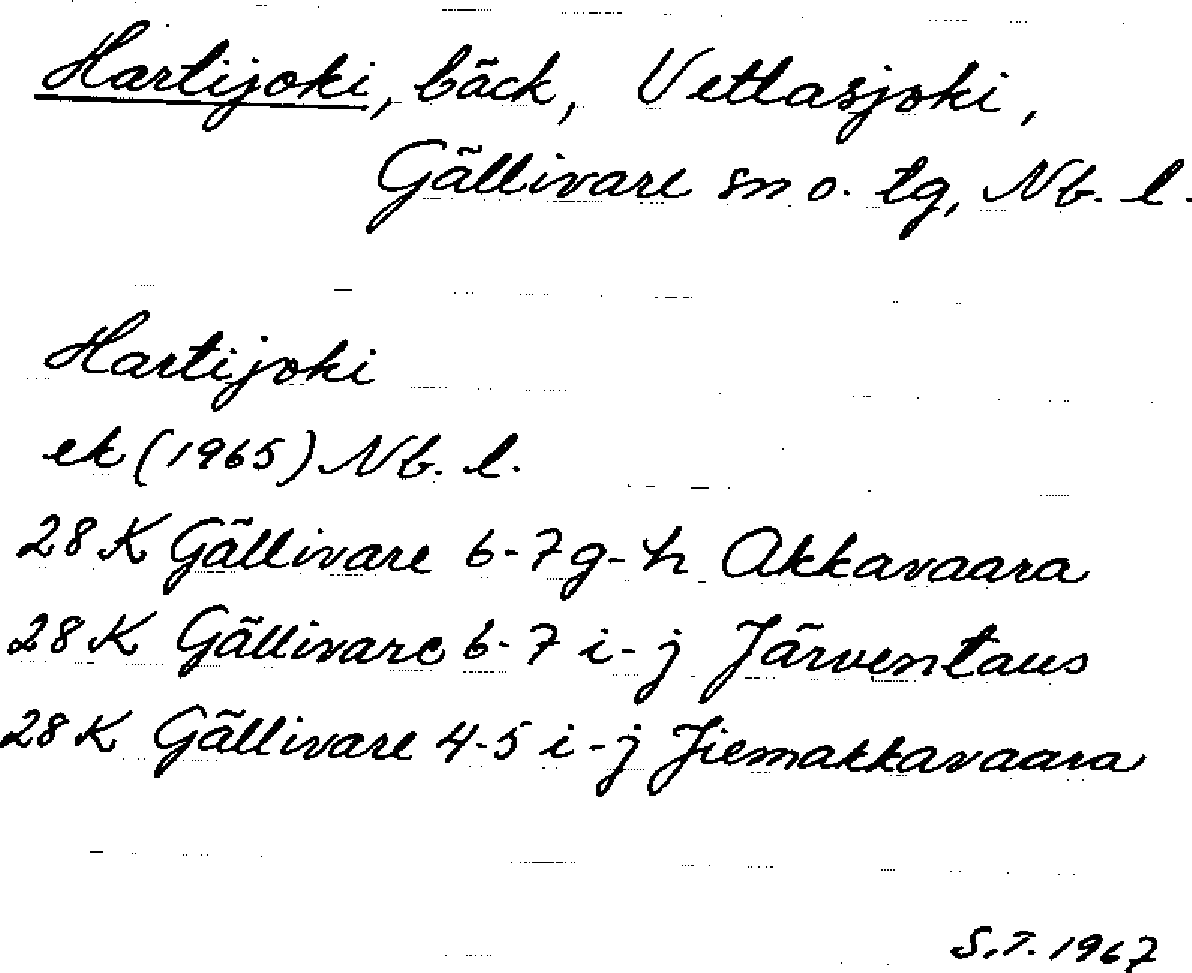 Hartijoki, bäck, Vettasjoki,
Gällivare sn o. tg, Nb. l.
Hartijoki
ek (1965) Nb. l.
28 K Gällivare 6-7 g-h Akkavaara
28 K Gällivare 6-7 i-j Järventaus
28 K Gällivare 4-5 i-j Jiemakkavaara
S.T. 1967